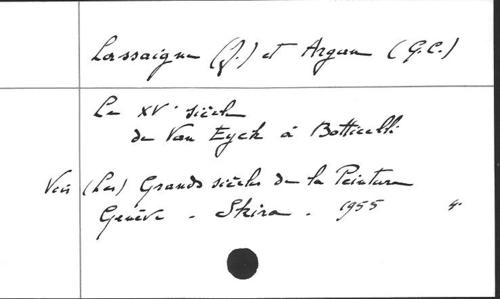 Lassaigne (J.) et Argan (G.C.)
Le XVe siècle
de Van Eyck à Botticelli
Voir (Les) Grands siècles de la Peinture
Genève - Skira - 1955 4°